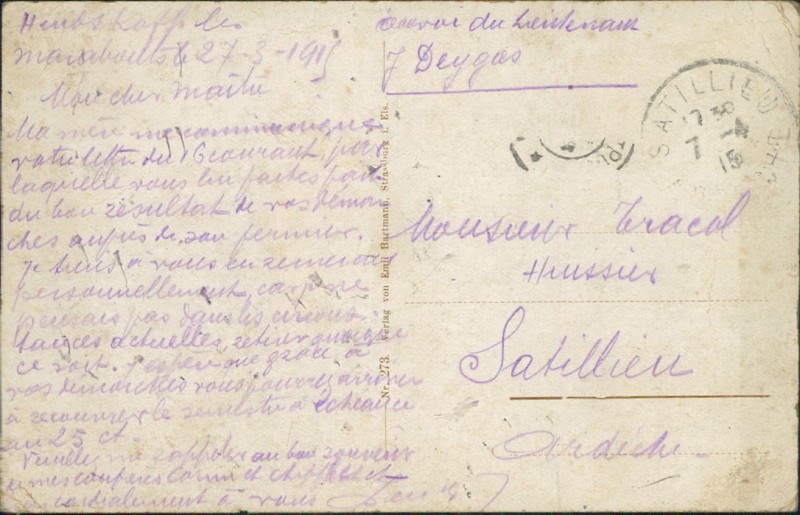 Marabouts le 27-3-1915
Mon cher Maître
Ma mère me communique
votre lettre du 16 courant, par
laquelle vous lui faites part
du bon résultat de vos démar
ches auprès de son fermier.
Je tiens à vous en remercier
personnellement, car je ne
pensais pas dans les circons
tances actuelles, retirer quoique
ce soit. J'espère que grâce à
vos démarches vous pourrez arriver
à recouvrer le semestre à échéance
au 25 ct
Veuillez me rappeler au bon souvenir
de mes confrères et
cordialement à vous
envoi du Lieutenant
J Deygas
SATILLIEU
7 -4
15
Monsieur Tracol
Huissier
Satillieu
Ardèche
Nr. 273. Verlag von Emil Hartmann, Strassburg i. Els.